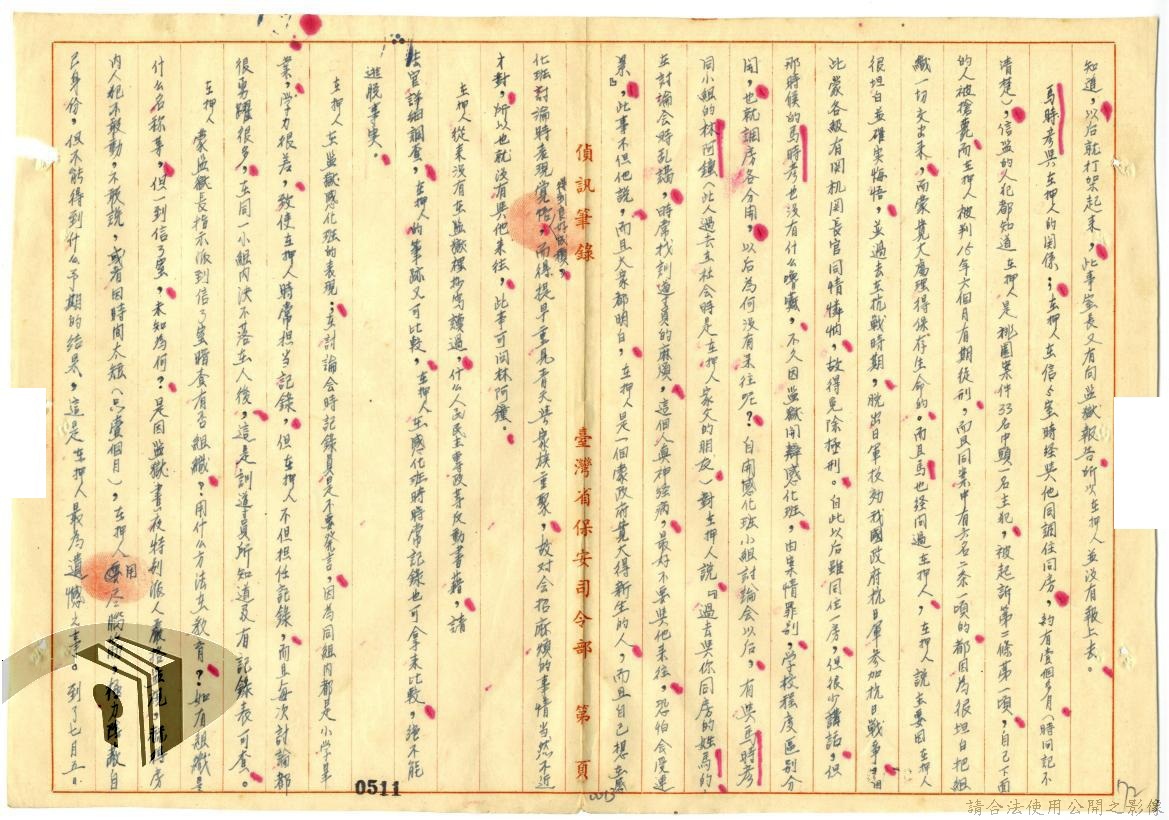 知道,以后就打架起来,此事室長又有向监獄報告所以在押人並没有報上去。
馬時彥與在押人的関係:在押人在信5室時経與他同調住同房,約有壹個多月(時间記不
清楚),信监的人犯都知道在押人是桃園案件33名中頭一名主犯,被起訴第二條第一項,自己下面
的人被槍斃而在押人被判15年六個月有期徒刑,而且同案中有六名二条一項的都因為很坦白把組
織一切交出来,而蒙寬大處理得保存生命的。而且馬也经问过在押人,在押人說主要因在押人
很坦白並確实悔悟,並過去在抗戰時期,脱出日軍投効我國政府抗日軍参加抗日戰争,
此蒙各級有関机関長官同情憐恤,故得免除極刑。自此以后雖同住一房,但很少講話,但
那時候的馬時彥也没有什么嚕囌,不久因监獄開辦感化班,由案情罪别,学校程度區别分
開,也就調房各分開,以后為何没有来往呢?自開感化班小組討論会以后,有與馬時彥
同小組的林阿鐘(此人過去在社会時是在押人家父的朋友)對在押人說『過去與你同房的姓馬的,
在討論会時乱講,時常找訓導員的麻煩,這個人真神经病,最好不要與他来往,恐怕会受連
累』,此事不但他說,而且大家都明白,在押人是一個蒙政府寬大得新生的人,而且自己想在感
化班討論時表現覚悟,得到良好成績,而得提早重見青天與家族重聚,故对会招麻煩的事情当然不近
才對,所以也就没有與他来往,此事可问林阿鐘。
在押人從来没有在监獄裡抄写讀過,什么人民民主專政等反動書藉,請
法官詳細調查,在押人的筆跡又可比較,在押人在感化班時時常記錄也可拿来比較,絕不能
逃脱事实。
在押人在监獄感化班的表現:在討論会時記錄員是不要発言,因為同組内都是小学畢
業,学力很差,致使在押人時常担当記錄,但在押人不但担任記錄,而且每次討論都
很勇躍很多,在同一小組内决不落在人後,這是訓導員所知道及有記錄表可查。
在押人蒙监獄長指示派到信3室暗查有否組織?用什么方法在教育?如有組織是
什么名称等,但一到信3室,未知為何?是因监獄書
内人犯不敢動,不敢說,或者因時间太短(只壹個月),在押人用尽腦筋,
己身份,但不能得到什么予期的結果,這是在押人最為遺憾之事。到了七月五日
偵訊筆錄
臺灣省保安司令部 第 頁
0511
0013
72
請合法使用公開之影像